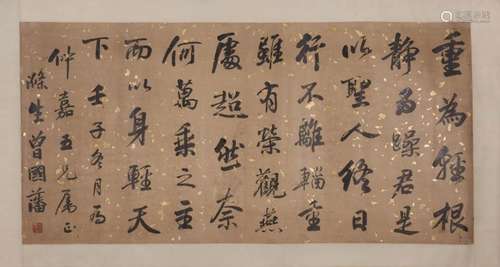 重為輕根
静為躁君是
以聖人終日
行不離輜重
雖有榮觀燕
處超然奈
何萬乘之主
而以身輕天
下壬子冬月為
仲嘉五兄属正
滌生曾國藩